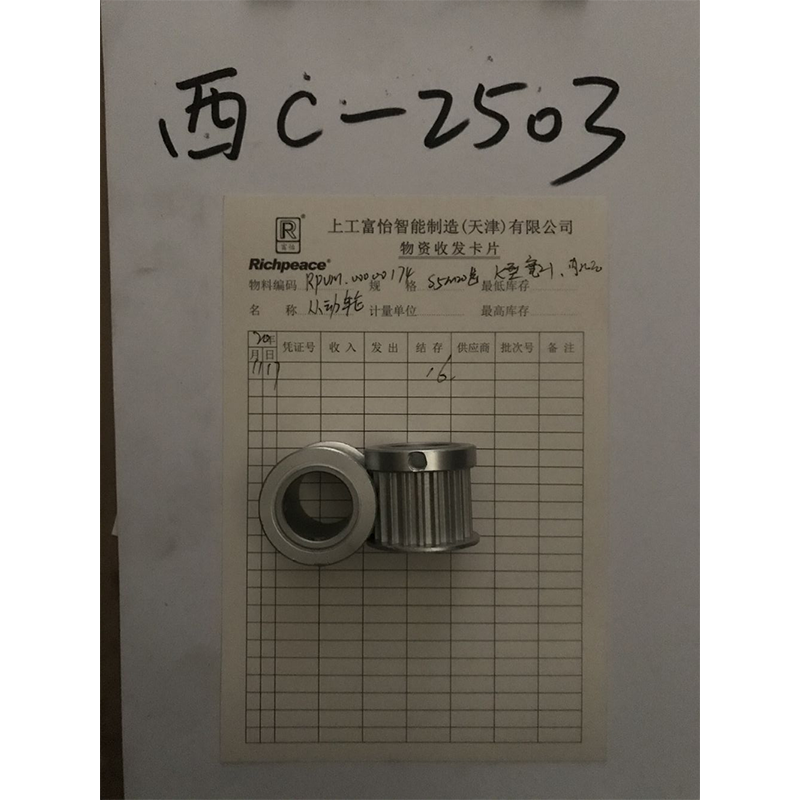 西C-2503
R
富怡
Richpeace®
上工富怡智能制造(天津)有限公司
物资收发卡片
物料编码 RPUM.00000174 规格 最低库存
名称 从动轮 计量单位 最高库存
20年
月 日 凭证号 收入 发出 结存 供应商 批次号 备注
11 17 16